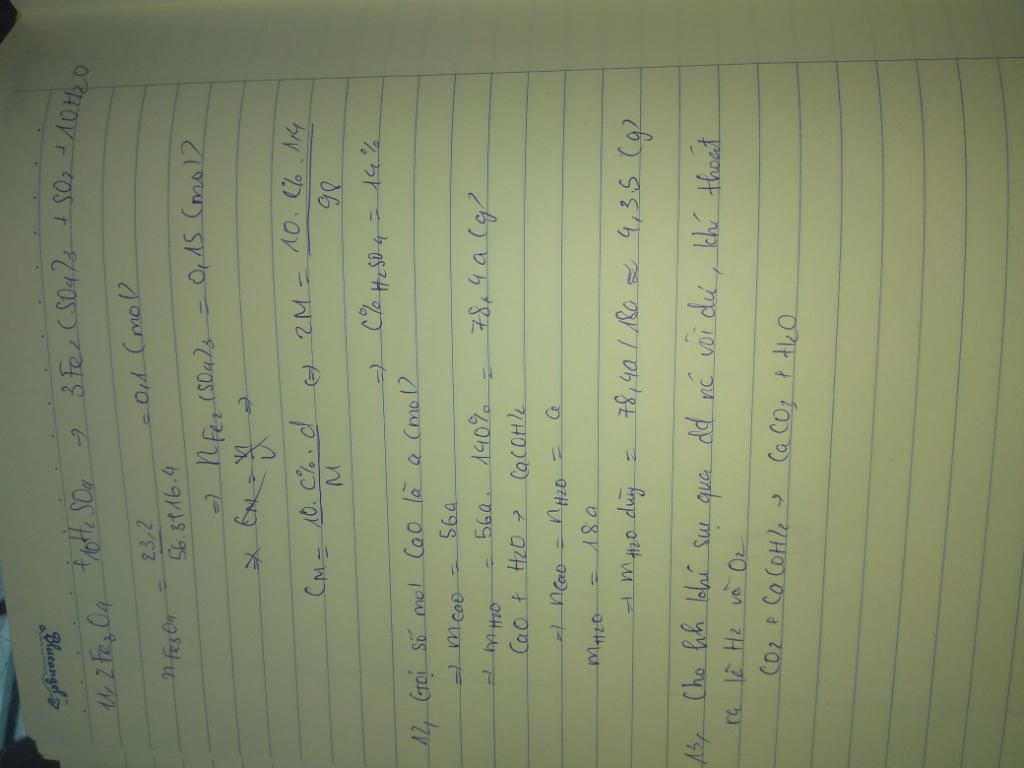 11, 2Fe3O4 + 10H2SO4 → 3Fe2(SO4)3 + SO2 + 10H2O
nFe3O4 = 23,2 / 56.3+16.4 = 0,1 (mol)
⇒ nFe2(SO4)3 = 0,15 (mol)
CM = n/V ⇒
CM = 10.C%.d / M ⇔ 2M = 10.C%.1,4 / 98
⇒ C%H2SO4 = 14%
12, Gọi số mol CaO là a (mol)
⇒ mCaO = 56a
⇒ mH2O = 56a.140% = 78,4a (g)
CaO + H2O → Ca(OH)2
⇒ nCaO = nH2O = a
mH2O = 18a
⇒ mH2O dùng = 78,4a / 18a ≈ 4,3.5 (g)
13, Cho hh khí sục qua dd nc vôi dư, khí thoát
ra là H2 và O2
CO2 + Ca(OH)2 → CaCO3 + H2O